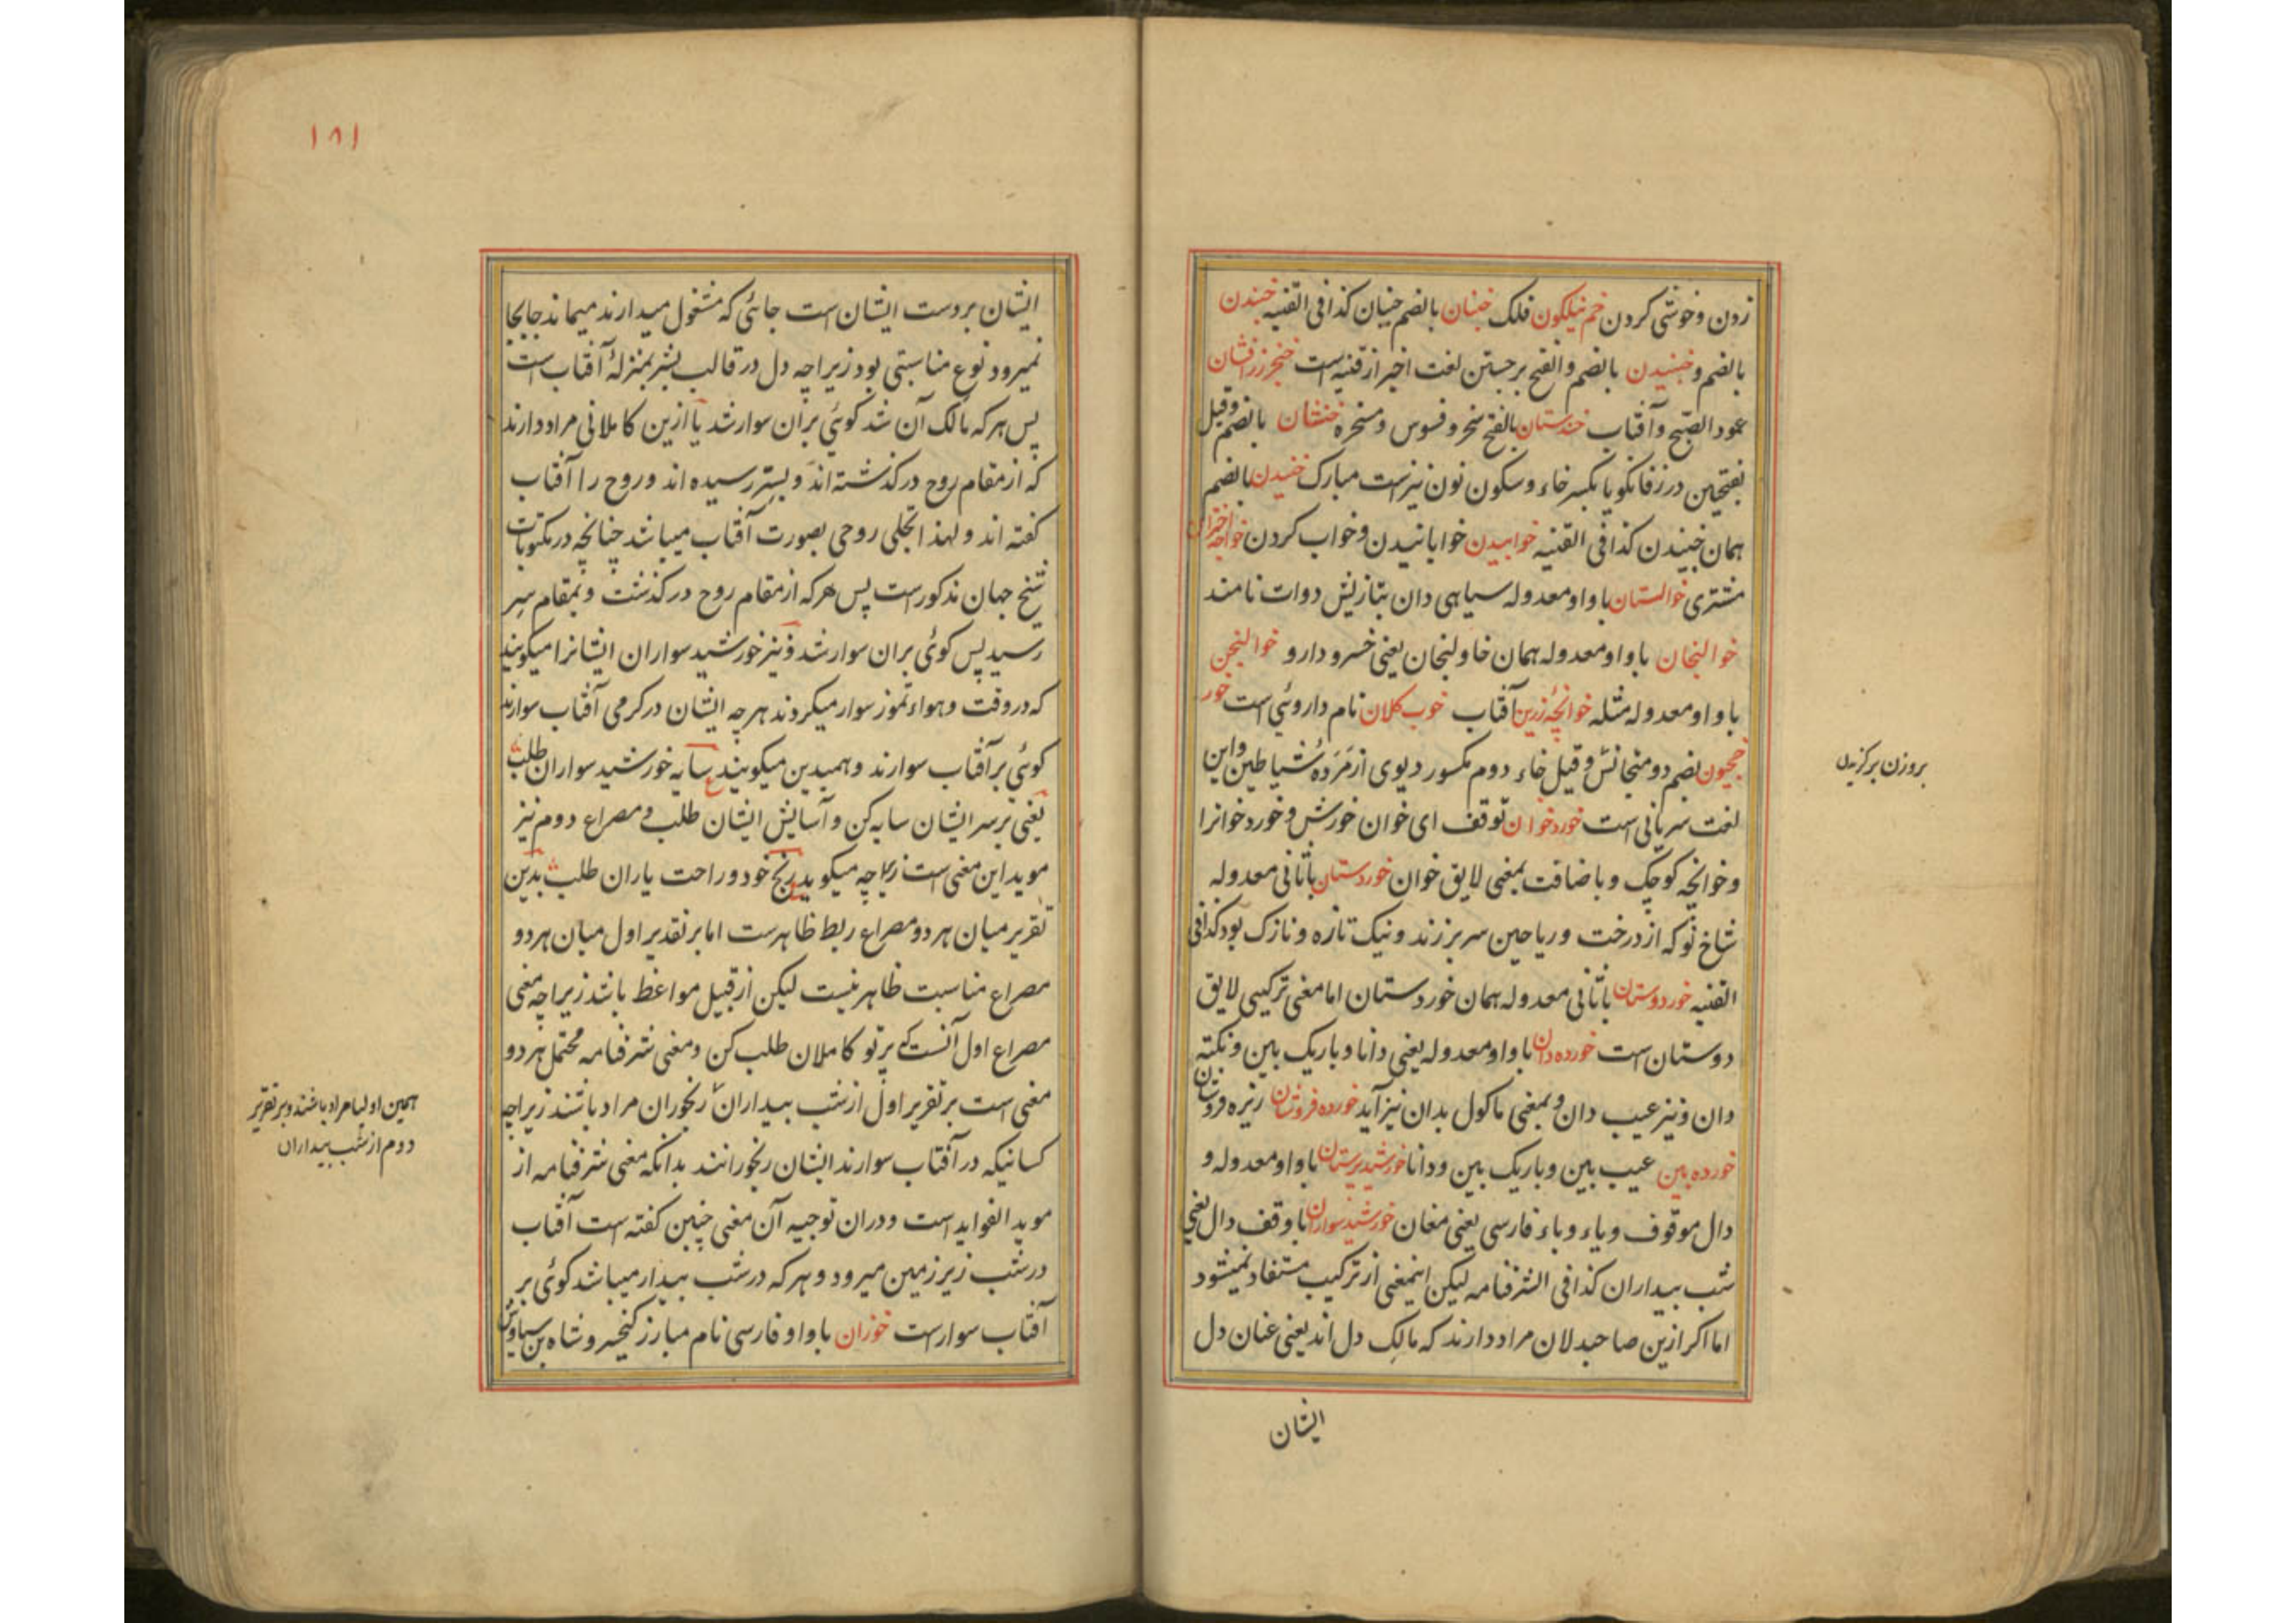 زدن و خوشی کردن خم نیلکون فلک خنبان بالضم خنبان کذافی القنیه خنبدن
بالضم و خنبیدن بالضم و الفتح برجستن لغت اخیر از قنیه است خنجر زرافشان
عمود الصبح و آفتاب خندستان بالفتح سخر و فسوس و مسخره خنشان بالضم وقیل
بفتحتین در زفانکویا بکسر خاء و سکون نون نیزست مبارک خنیدن بالضم
همان خنبیدن کذافی القنیه خوابیدن خوابانیدن و خواب کردن خواجه اختران
مشتری خوالستان با واو معدوله سیاهی دان بتازیش دوات نامند
خوالنجان با واو معدوله همان خاولنجان یعنی خسرودارو خوالنجن
با واو معدوله مثله خوانچهٔ زرین آفتاب خوب کلان نام داروئی است خور
خجیون بضم دو متجانس وقیل خاء دوم مکسور دیوی از مَرَدهٔ شیاطین و این
بروزن برکزیدن
لغت سریانی است خوردخوان توقف ای خوان خورش و خورد خوانرا
و خوانچه کوچک و باضافت بمعنی لایق خوان خوردستان باثانی معدوله
شاخ نو که از درخت و ریاحین سر بر زند و نیک تازه و نازک بود کذافی
القنیه خوردوستان باثانی معدوله همان خوردستان اما معنی ترکیبی لایق
دوستان است خورده دان با واو معدوله یعنی دانا و باریک بین و نکته
دان و نیز عیب دان و بمعنی ماکول بدان نیز آید خورده فروشان ریزه فروشان
خورده بین عیب بین و باریک بین و دانا خورشید پرستان با واو معدوله و
دال موقوف و یاء و باء فارسی یعنی مغان خورشید سواران با وقف دال یعنی
شب بیداران کذافی الشرفنامه لیکن اینمعنی از ترکیب مستفاد نمیشود
اما اکر ازین صاحبدلان مراد دارند که مالک دل اند یعنی عنان دل
ایشان
۱۸۱
ایشان بر دست ایشان است جائی که مشغول میدارند میماند جابجا
نمیرود نوع مناسبتی بود زیراچه دل در قالب بشر بمنزلهٔ آفتاب است
پس هر که مالک آن شد کوئی بران سوار شد یا ازین کاملانی مراد دارند
که از مقام روح درکذشته اند و بستر رسیده اند و روح را آفتاب
کفته اند و لهذا تجلی روحی بصورت آفتاب میباشد چنانچه در مکتوبات
شیخ جهان مذکورست پس هر که از مقام روح درکذشت و بمقام سر
رسید پس کوئی بران سوار شد و نیز خورشید سواران ایشانرا میکویند
که در وقت و هواء تموز سوار میکردند هرچه ایشان در کرمی آفتاب سوارند
کوئی بر آفتاب سوارند و همیدین میکویند سایه خورشید سواران طلب
یعنی بر سر ایشان سایه کن و آسایش ایشان طلب و مصراع دوم نیز
موید این معنی است زیراچه میکوید رنج خود و راحت یاران طلب بدین
تقریر میان هر دو مصراع ربط ظاهرست اما بر تقدیر اول میان هر دو
مصراع مناسبت ظاهر نیست لیکن از قبیل مواعظ باشد زیراچه معنی
مصراع اول آنست که پرتو کاملان طلب کن و معنی شرفنامه محتمل هر دو
معنی است بر تقریر اول از شب بیداران رنجوران مراد باشند زیراچه
همین اولیا مراد باشند و بر تقریر
دوم از شب بیداران
کسانیکه در آفتاب سوارند ایشان رنجورانند بدانکه معنی شرفنامه از
موید الفواید است و دران توجیه آن معنی چنین کفته است آفتاب
در شب زیر زمین میرود و هر که در شب بیدار میباشد کوئی بر
آفتاب سوارست خوزان با واو فارسی نام مبارز کیخسرو شاه بن سیاوش